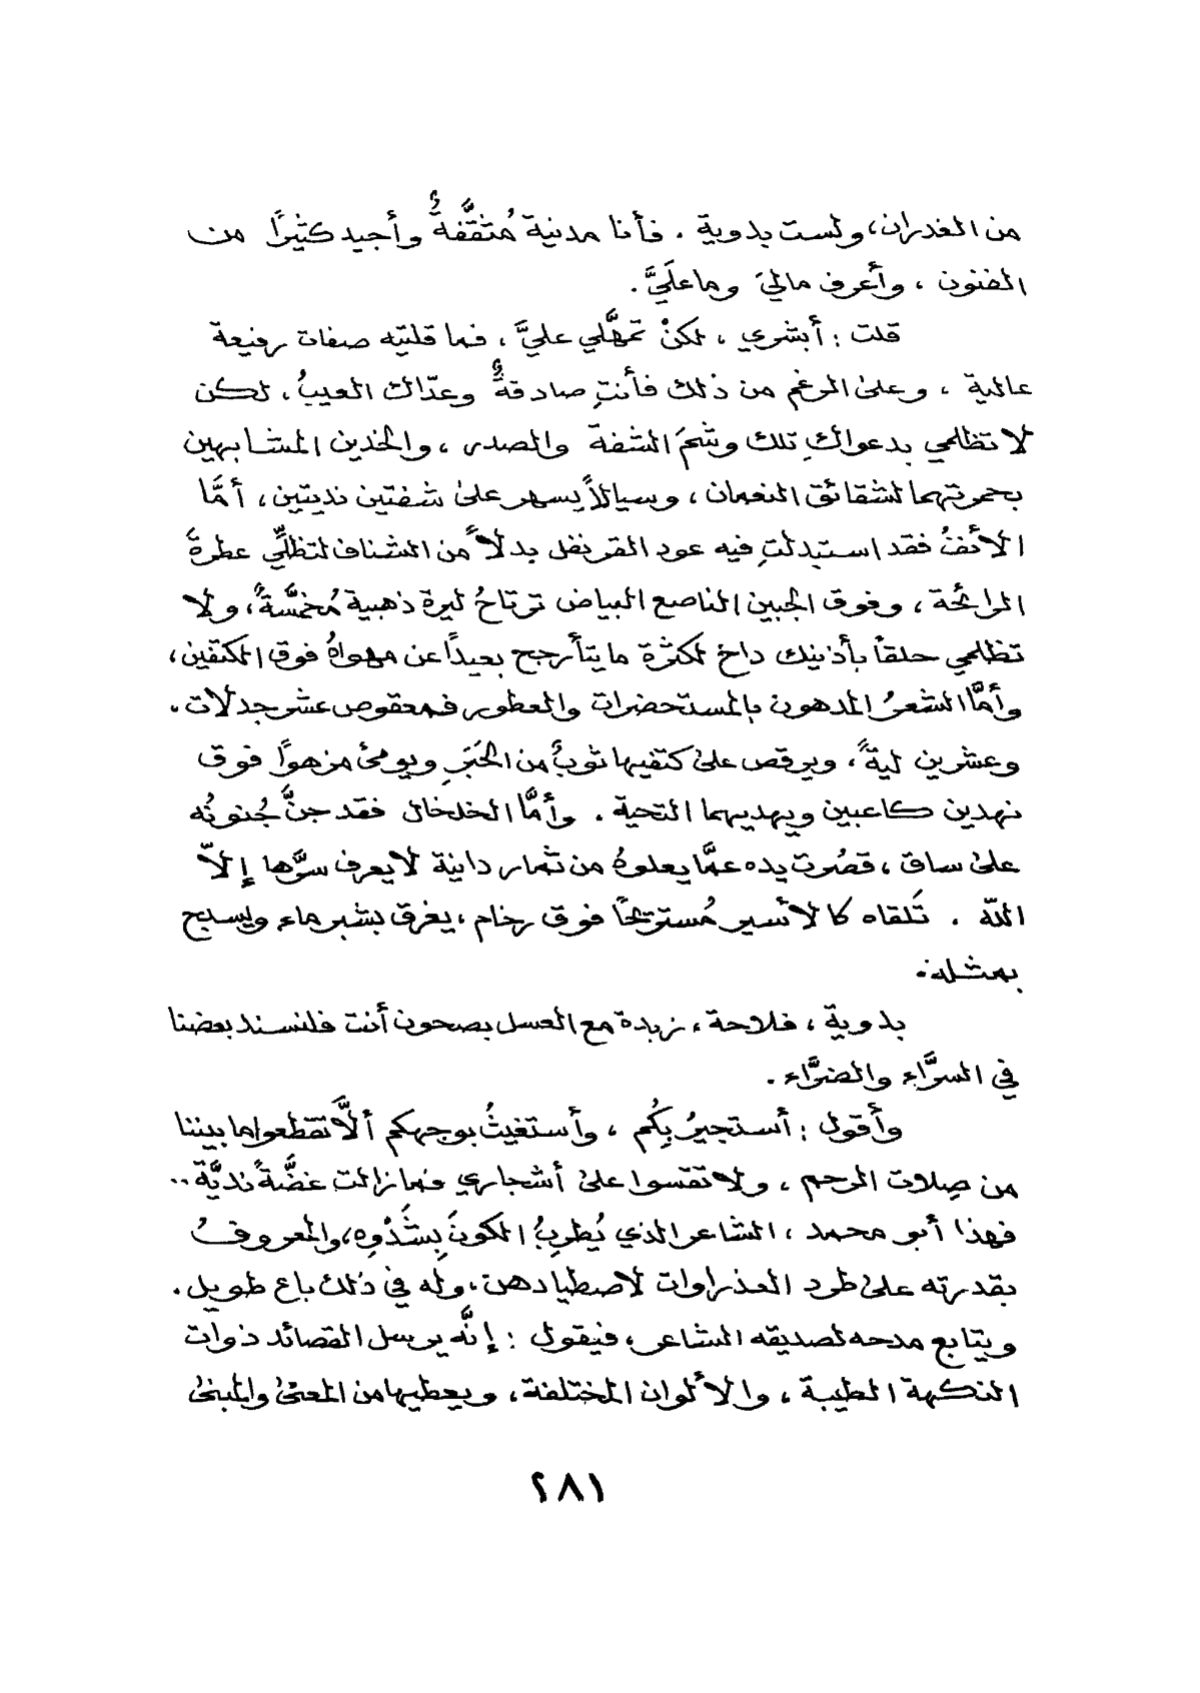 من الغدران، ولست بدوية . فأنا مدنية مُثقَّفةٌ وأجيد كثيرًا من
الفنون ، وأعرف ماليَ وما علَيَّ .
قلت : أبشري ، لكنْ تمهَّلي عليَّ ، فما قلتِه صفات رفيعة
عالية ، وعلى الرغم من ذلك فأنتِ صادقةٌ وعدّاك العيبُ ، لكن
لا تظلمي بدعواكِ تلك وشمَ الشفة والصدر ، والخدين المشابهين
بحمرتهما لشقائق النعمان ، وسيالاً يسهر على شفتين نديتين ، أمَّا
الأنفُ فقد استبدلتِ فيه عود القرنفل بدلاً من الشناف لتظلِّي عطرةَ
الرائحة ، وفوق الجبين الناصع البياض ترتاحُ ليرة ذهبية مُخمَّسةٌ ، ولا
تظلمي حلقاً بأذنيك داخ لكثرة ما يتأرجح بعيدًا عن مهواهُ فوق الكتفين ،
وأمَّا الشعرُ المدهون بالمستحضرات والعطور فمعقوص عشر جدلات .
وعشرين ليةً ، ويرقص على كتفيها ثوبٌ من الحَبَرِ ويومئ مزهوًا فوق
نهدين كاعبين ويهديهما التحية . وأمَّا الخلخال فقد جنَّ جُنونُه
على ساق ، قصُرت يده عمَّا يعلوهُ من ثمار دانية لا يعرف سرَّها إلاّ
الله . تَلقاه كالأسير مُستريحًا فوق رخام ، يغرق بشبر ماء ويسبح
بمثله.
بدوية ، فلاحة ، زبدة مع العسل بصحون أنت فلنسند بعضنا
في السرَّاء والضرَّاء .
وأقول : أستجيرُ بِكُم ، وأستغيثُ بوجهكم ألَّا تقطعوا ما بيننا
من صِلات الرحم ، ولا تقسوا على أشجاري فما زالت غضَّةً نديَّة ..
فهذا أبو محمد ، الشاعر الذي يُطرِبُ الكونَ بِشَدْوِه، والمعروفُ
بقدرته على طرد العذراوات لاصطيادهن ، وله في ذلك باع طويل .
ويتابع مدحه لصديقه الشاعر ، فيقول : إنَّه يرسل القصائد ذوات
النكهة الطيبة ، والألوان المختلفة ، ويعطيها من المعنى والمبنى
٢٨١